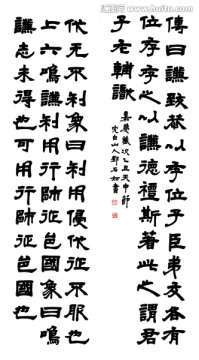 www.huitu.com
傳曰謙致恭以存位子臣弟友各有
位存存之以謙德斯著此之謂君
子
嘉慶歲次乙丑天中節
完白山人鄧石如書
伐无不利象曰利用侵伐征不服也
上六鳴謙利用行師征邑國象曰鳴
謙志未得也可用行師征邑國也